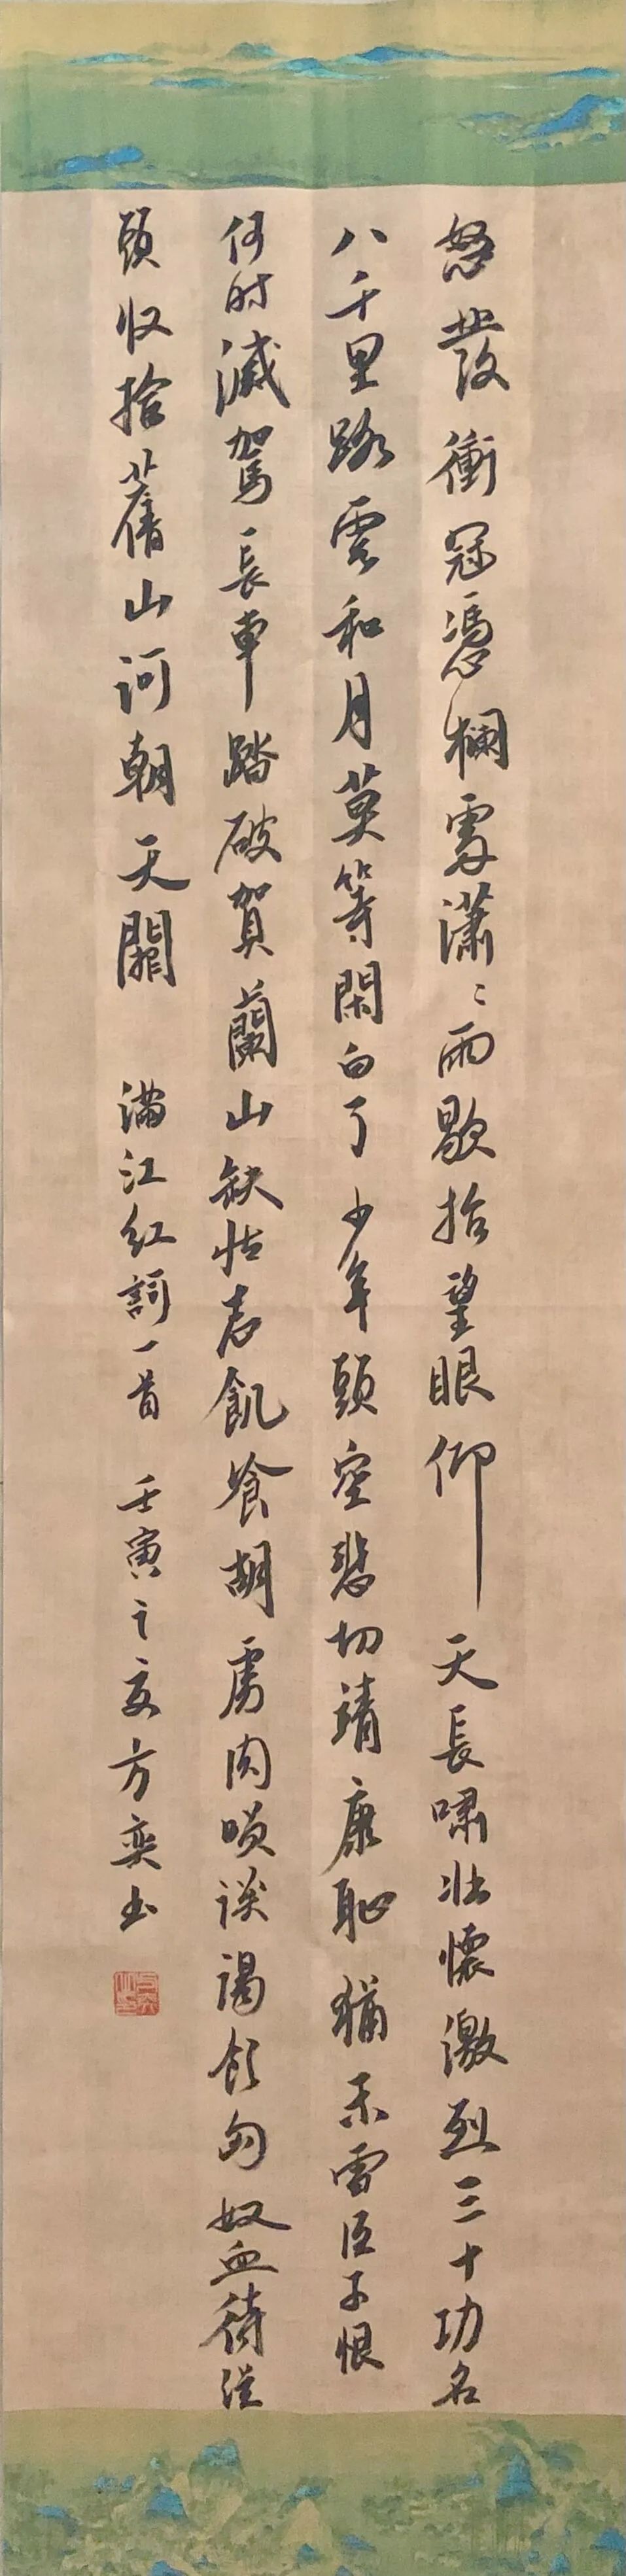 怒髮衝冠憑欄處瀟〻雨歇抬望眼仰天長嘯壯懷激烈三十功名
八千里路雲和月莫等閑白了少年頭空悲切靖康恥猶未雪臣子恨
何時滅駕長車踏破賀蘭山缺壯志飢飡胡虜肉笑談渴飲匈奴血待從
頭收拾舊山河朝天闕 滿江紅詞一首 壬寅之夏方奕书